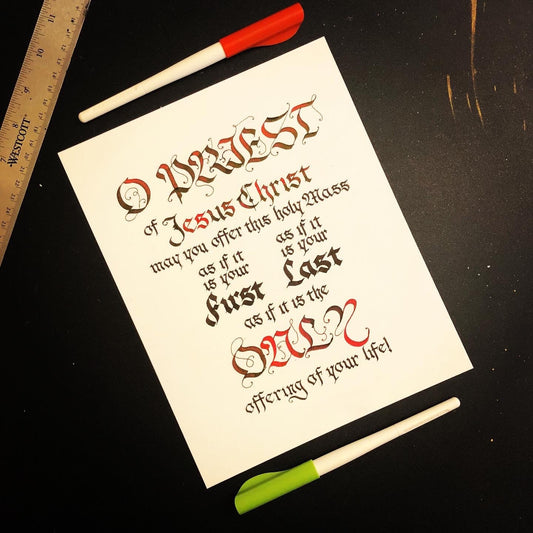 O PRIEST
of Jesus Christ
may you offer this holy Mass
as if it as if it
is your is your
First Last
as if it is the
ONLY
offering of your life!
WESTCOTT
11
10
9
8